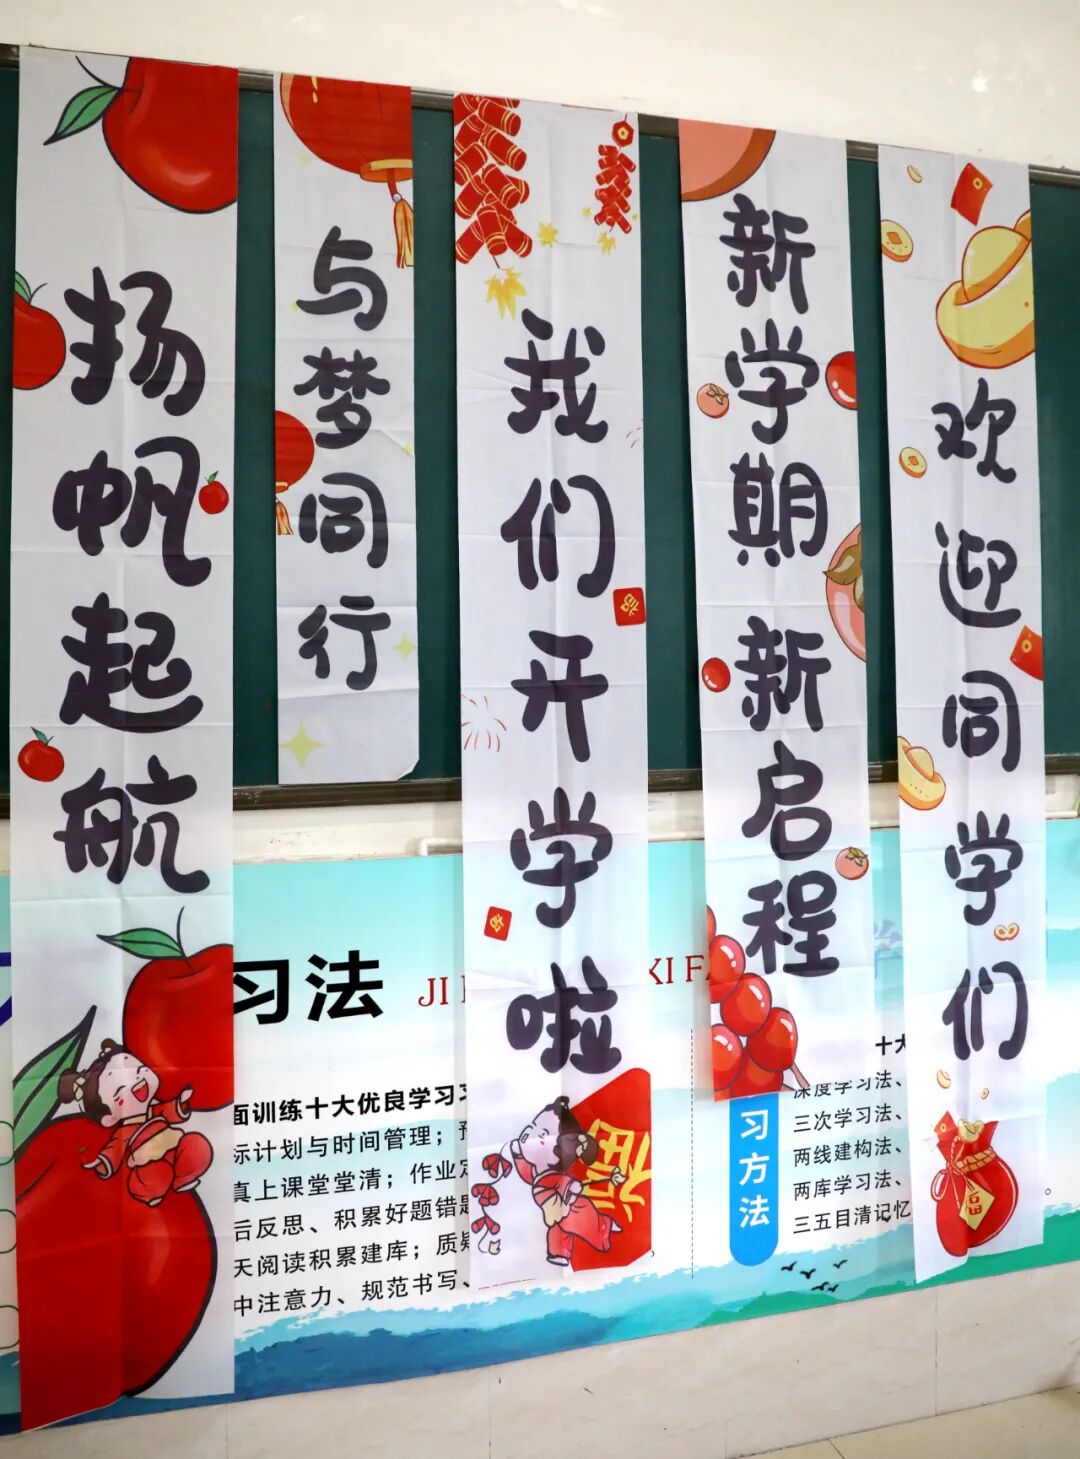 扬帆起航
与梦同行
我们开学啦
新学期新启程
欢迎同学们
福
福
习法
JI
XI FA
面训练十大优良学习
标计划与时间管理；
真上课堂堂清；作业定
后反思、积累好题错题
天阅读积累建库；质疑
中注意力、规范书写、
习方法
十大
深度学习法、
三次学习法、
两线建构法、
两库学习法、
三五目清记忆